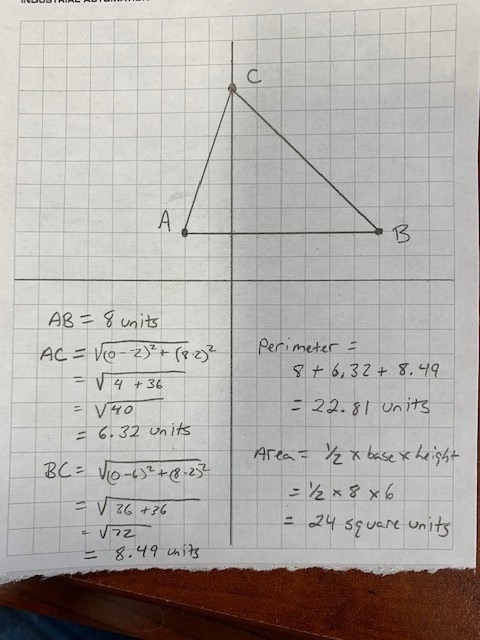 INDUSTRIAL AUTOMATION
C
A
B
AB = 8 units
AC = √(0--2)²+(8-2)²
= √4 + 36
= √40
= 6.32 units
BC = √(0-6)²+(8-2)²
= √36 +36
= √72
= 8.49 units
Perimeter =
8 + 6.32 + 8.49
= 22.81 units
Area = ½ × base × height
= ½ × 8 × 6
= 24 square units